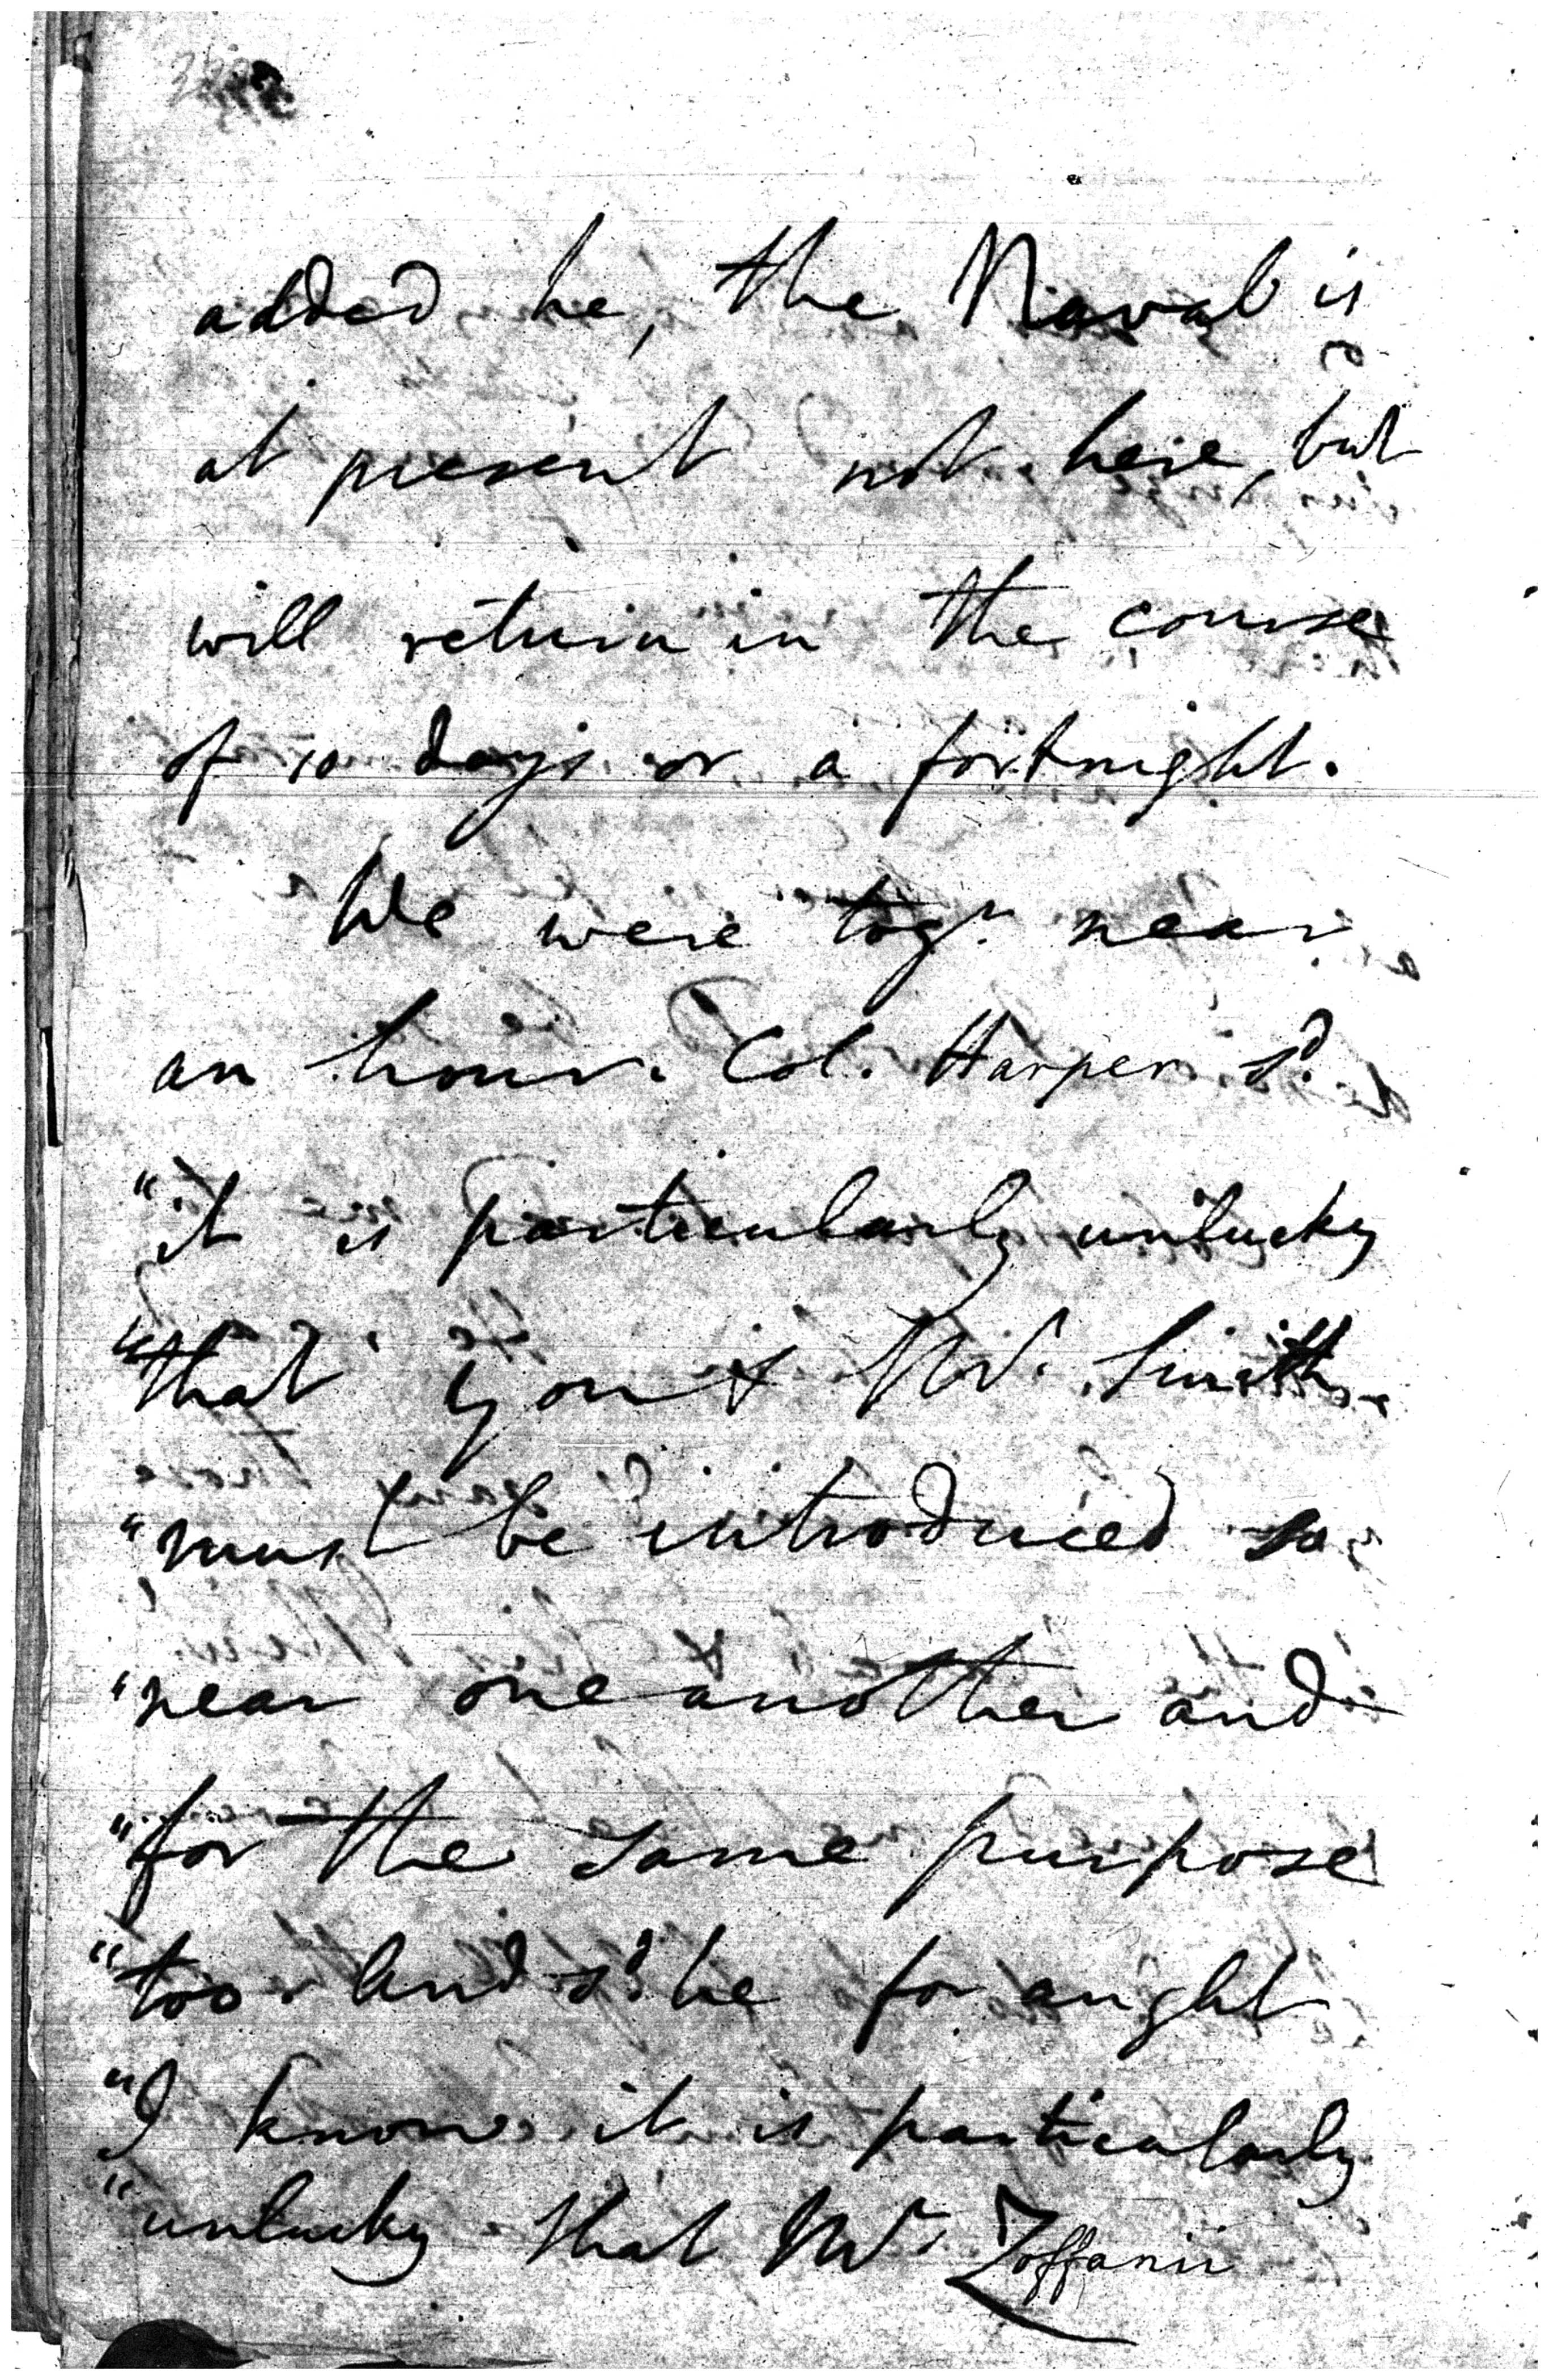 added he, the Navab is
at present not here, but
will return in the course
of 10 days or a fortnight.
We were togr. near
an hour. Col. Harper sd.
"it is particularly unlucky
"that you & Mr. Smith
"must be introduced so
"near one another and
"for the same purpose
"too. And sd. he for aught
"I know it is particularly
"unlucky that Mr. Zoffanii